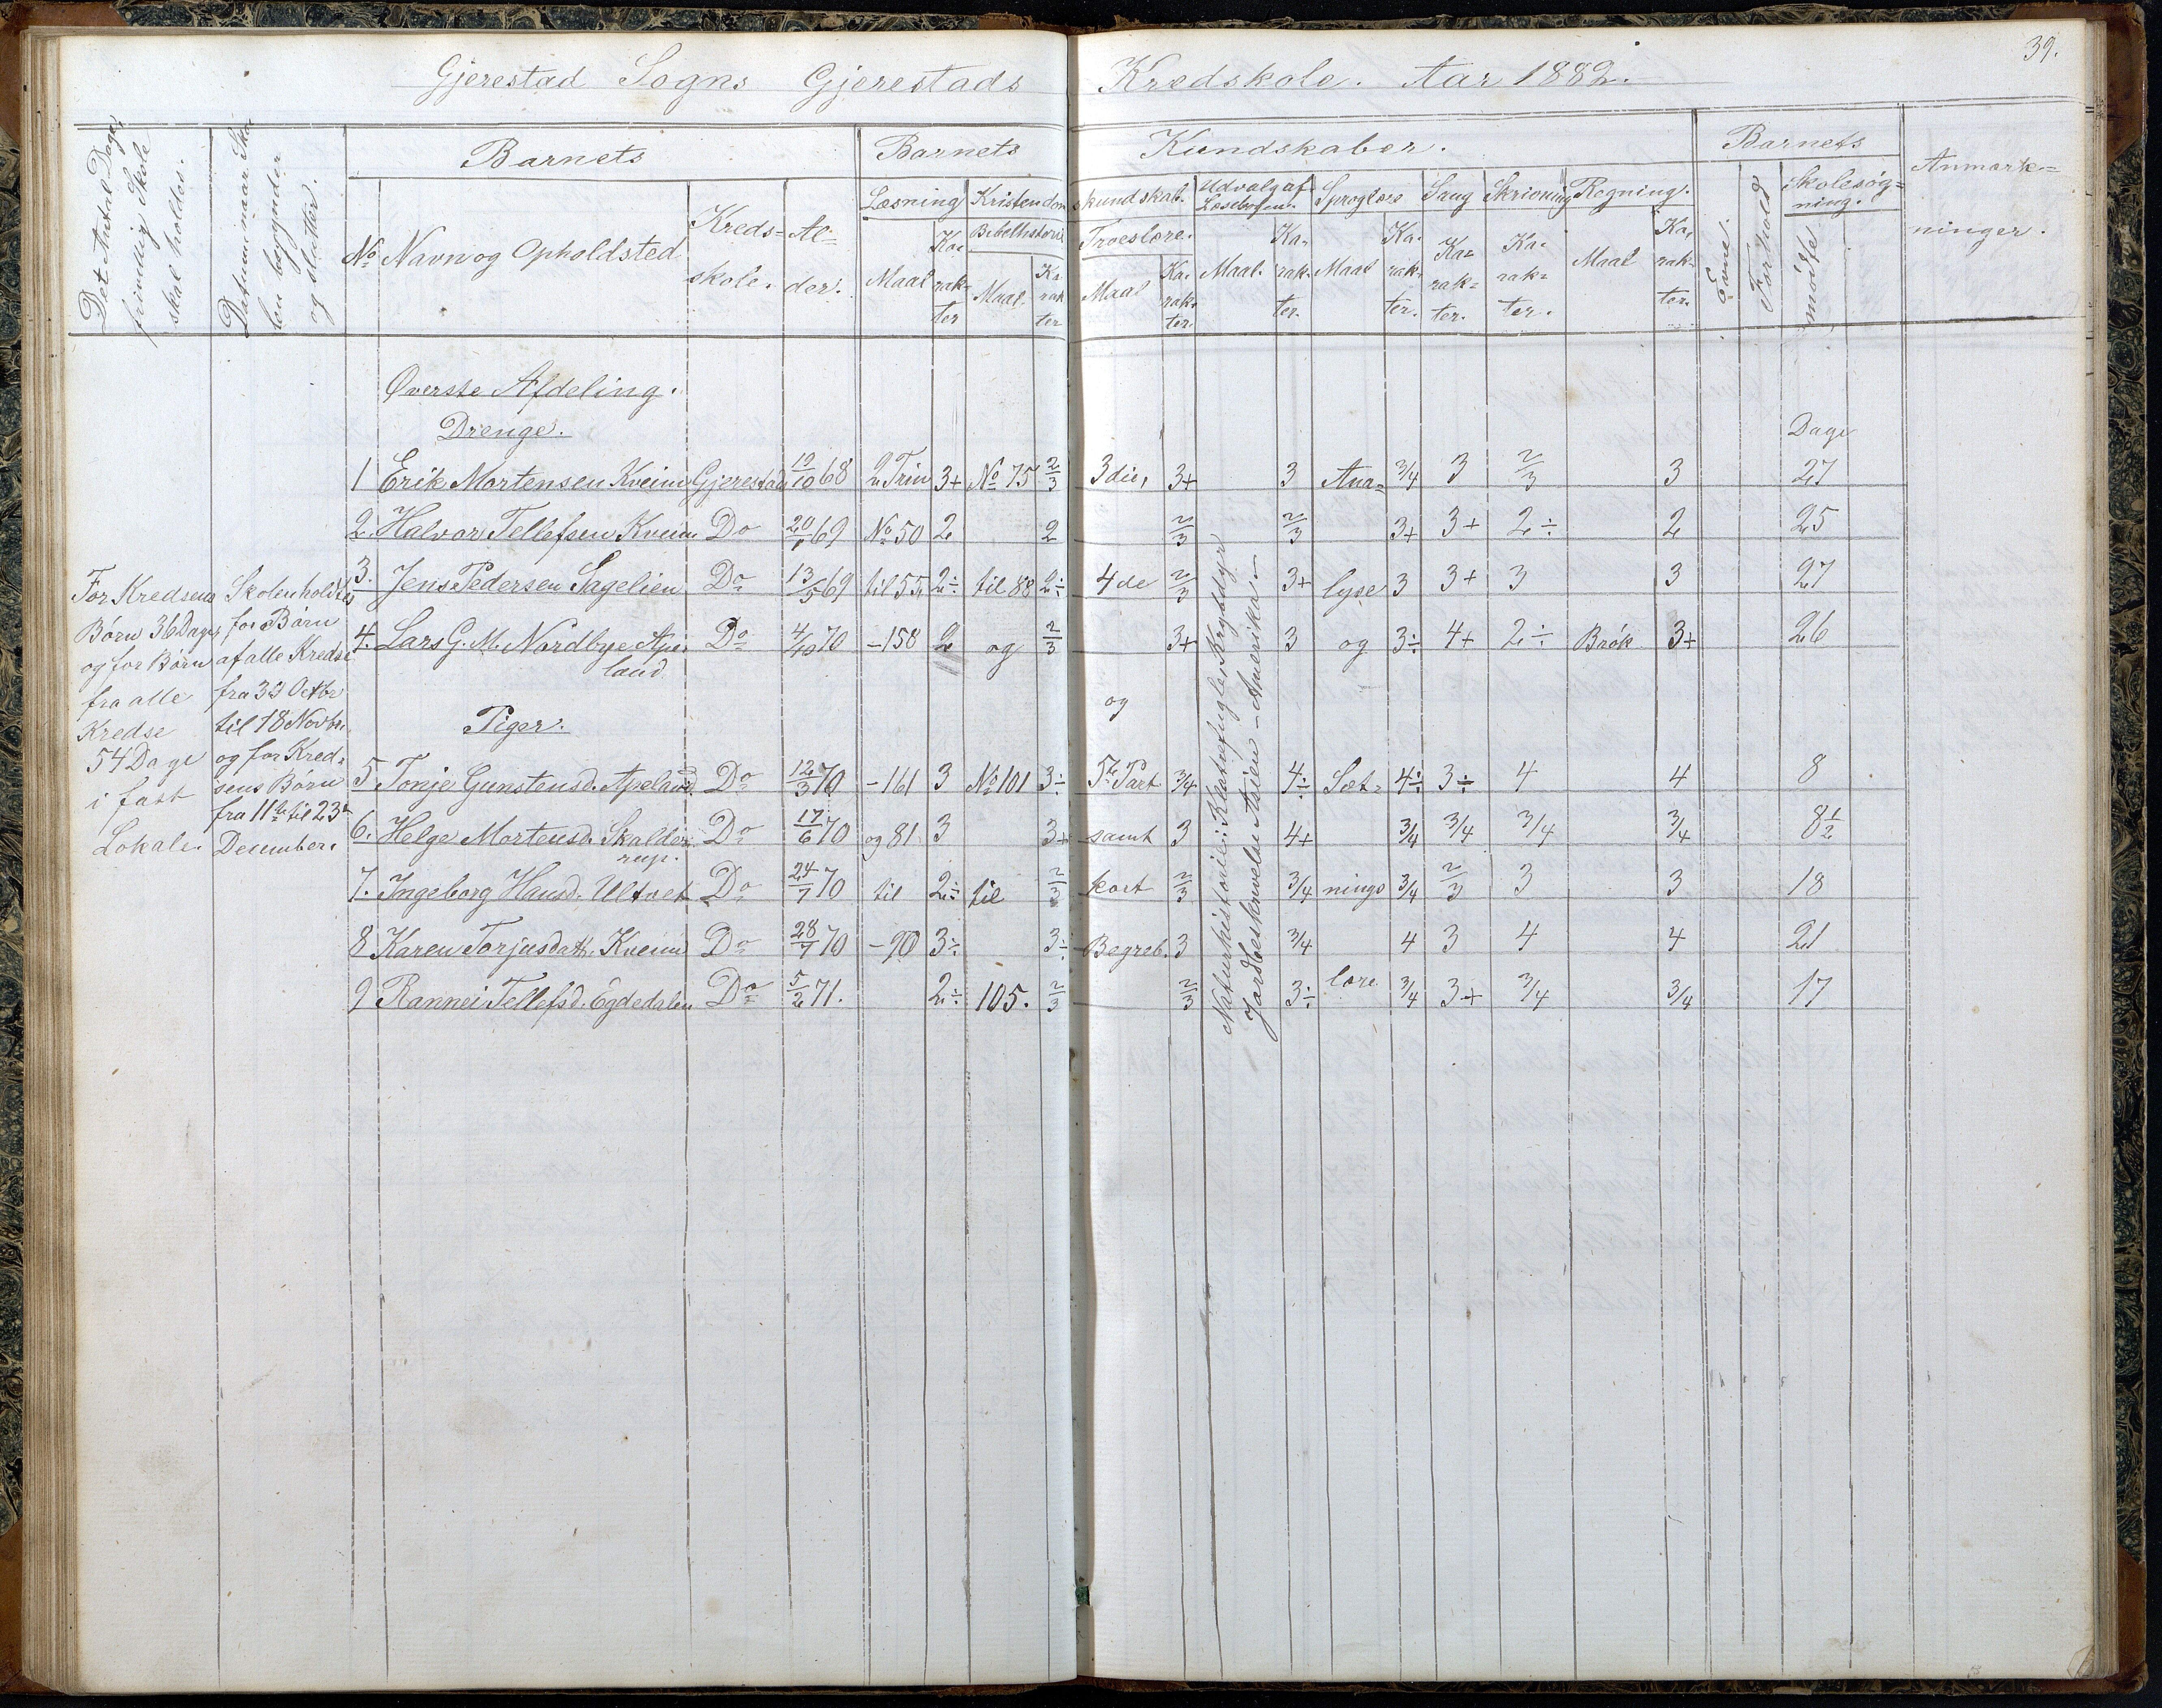 39.
Gjerestad Sogns Gjerestads Kredskole. Aar 1882.
Det Antal Dage,
frivillig Skole
skal holdes.
Datum naar Sko-
len begynder
og slutter.
Barnets
No Navn og Opholdsted
Kreds-
skole.
Al-
der.
Barnets Kundskaber.
Læsning
Maal
Ka-
rak-
ter
Kristendomskundskab.
Bibelhistorie
Maal.
Ka-
rak
ter
Troeslære.
Maal
Ka-
rak-
ter
Udvalg af
Læsebogen.
Maal.
Ka-
rak-
ter.
Sproglære
Maal
Ka-
rak-
ter.
Sang
Ka-
rak-
ter.
Skrivning
Ka-
rak-
ter.
Regning.
Maal
Ka-
rak-
ter.
Barnets
Evne.
Forhold
Skolesøg-
ning.
mødte
Anmærk-
ninger.
Øverste Afdeling.
Drenge.
Dage
1 Erik Mortensen Kveim Gjerestad 19/10 68 2 Trin 3+ No 75 2/3 3die, 3+ 3 Ana- 3/4 3 2/3 3 27
2. Halvor Tellefsen Kveim Do 20/1 69 No 50 2 2 2/3 2/3 3+ 3+ 2÷ 2 25
3. Jens Pedersen Sagelien Do 13/5 69 til 55, 2÷ til 88 2÷ 4de 2/3 3+ lyse 3 3+ 3 3 27
4. Lars G. M. Nordbye Ape-
land Do 4/10 70 -158 2 og 2/3 3+ 3 og 3÷ 4+ 2÷ Brøk 3+ 26
og
Piger.
5. Tonje Gunstensd. Apeland Do 12/3 70 -161 3 No 101 3÷ 5te Part 3/4 4÷ Sæt- 4÷ 3÷ 4 4 8
6. Helge Mortensd. Skalde-
rup. Do 17/6 70 og 81 3 3+ samt 3 4+ 3/4 3/4 3/4 3/4 8 1/2
7. Ingeborg Hansd. Ultvet Do 24/7 70 til 2÷ til 2/3 kort 2/3 3/4 nings 3/4 2/3 3 3 18
8 Karen Torjusdatt. Kveim Do 28/7 70 -90 3÷ 3÷ Begreb. 3 3/4 4 3 4 4 21
9 Rannei Tellefsd. Egdedalen Do 5/2 71. 2÷ 105. 2/3 2/3 3÷ lære 3/4 3+ 3/4 3/4 17
For Kredsens
Børn 36 Dage,
og for Børn
fra alle
Kredse
54 Dage
i fast
Lokale.
Skolen holdtes
for Børn
af alle Kredse
fra 23 Octbr
til 18 Novbr.
og for Kred-
sens Børn
fra 11te til 23de
December.
Naturhistorie: Klatrefugle, Krybdyr
Jordbeskrivelse Asien - Amerika -